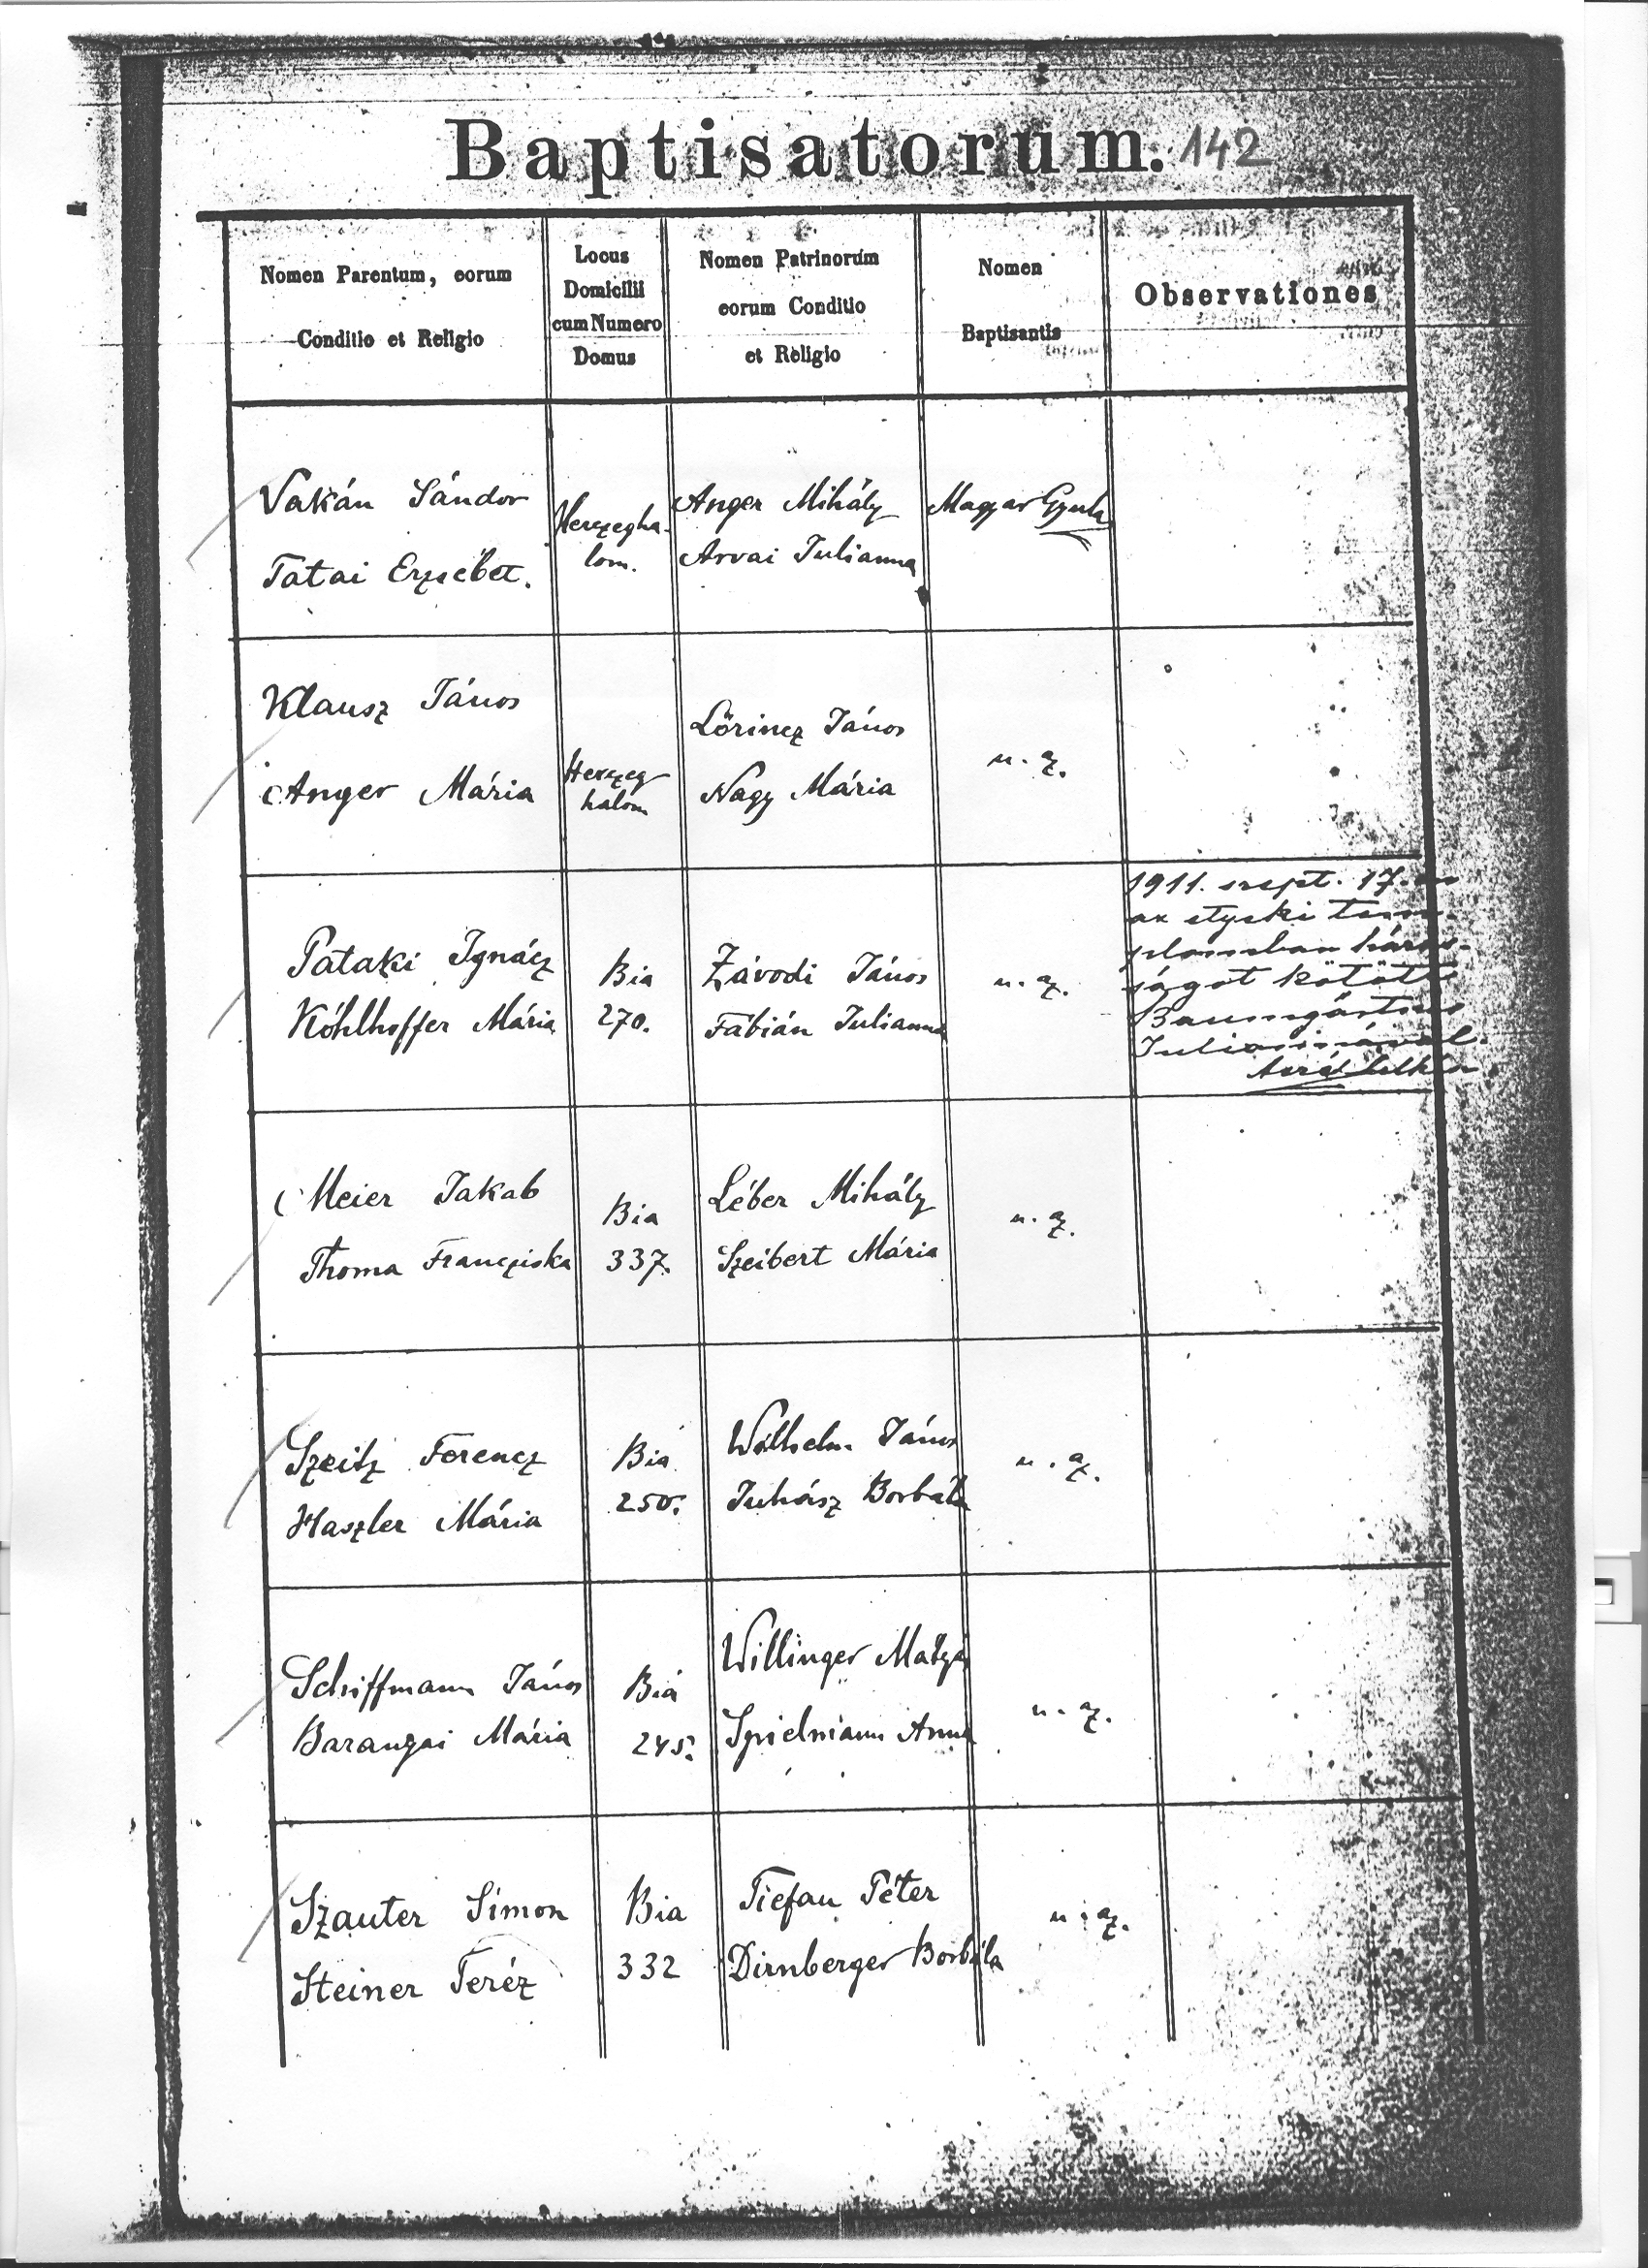 Baptisatorum. 142
Nomen Parentum, eorum
Conditio et Religio
Locus
Domicilii
cum Numero
Domus
Nomen Patrinorum
eorum Conditio
et Religio
Nomen
Baptisantis
Observationes
Vakán Sándor
Tatai Erzsébet.
Herczegha-
lom.
Anger Mihály
Arvai Julianna
Magyar Gyula
Klausz János
Anger Mária
Herczeg
halom
Lőrincz János
Nagy Mária
u. az.
Pataki Ignácz
Köhlhoffer Mária
Bia
270.
Závodi János
Fábián Julianna
u. az.
1911. szept. 17. én
az etyeki tem-
plomban háza-
ságot kötött
Baumgärtner
Juliannával.
Meier Jakab
Thoma Francziska
Bia
337.
Léber Mihály
Szeibert Mária
u. az.
Szeitz Ferencz
Haszler Mária
Bia
250.
Wilhelm János
Juhász Borbála
u. az.
Schiffmann János
Barangai Mária
Bia
245.
Willinger Mátyás
Spielmann Anna
u. az.
Szauter Simon
Steiner Teréz
Bia
332
Tiefau Péter
Dirnberger Borbála
u. az.